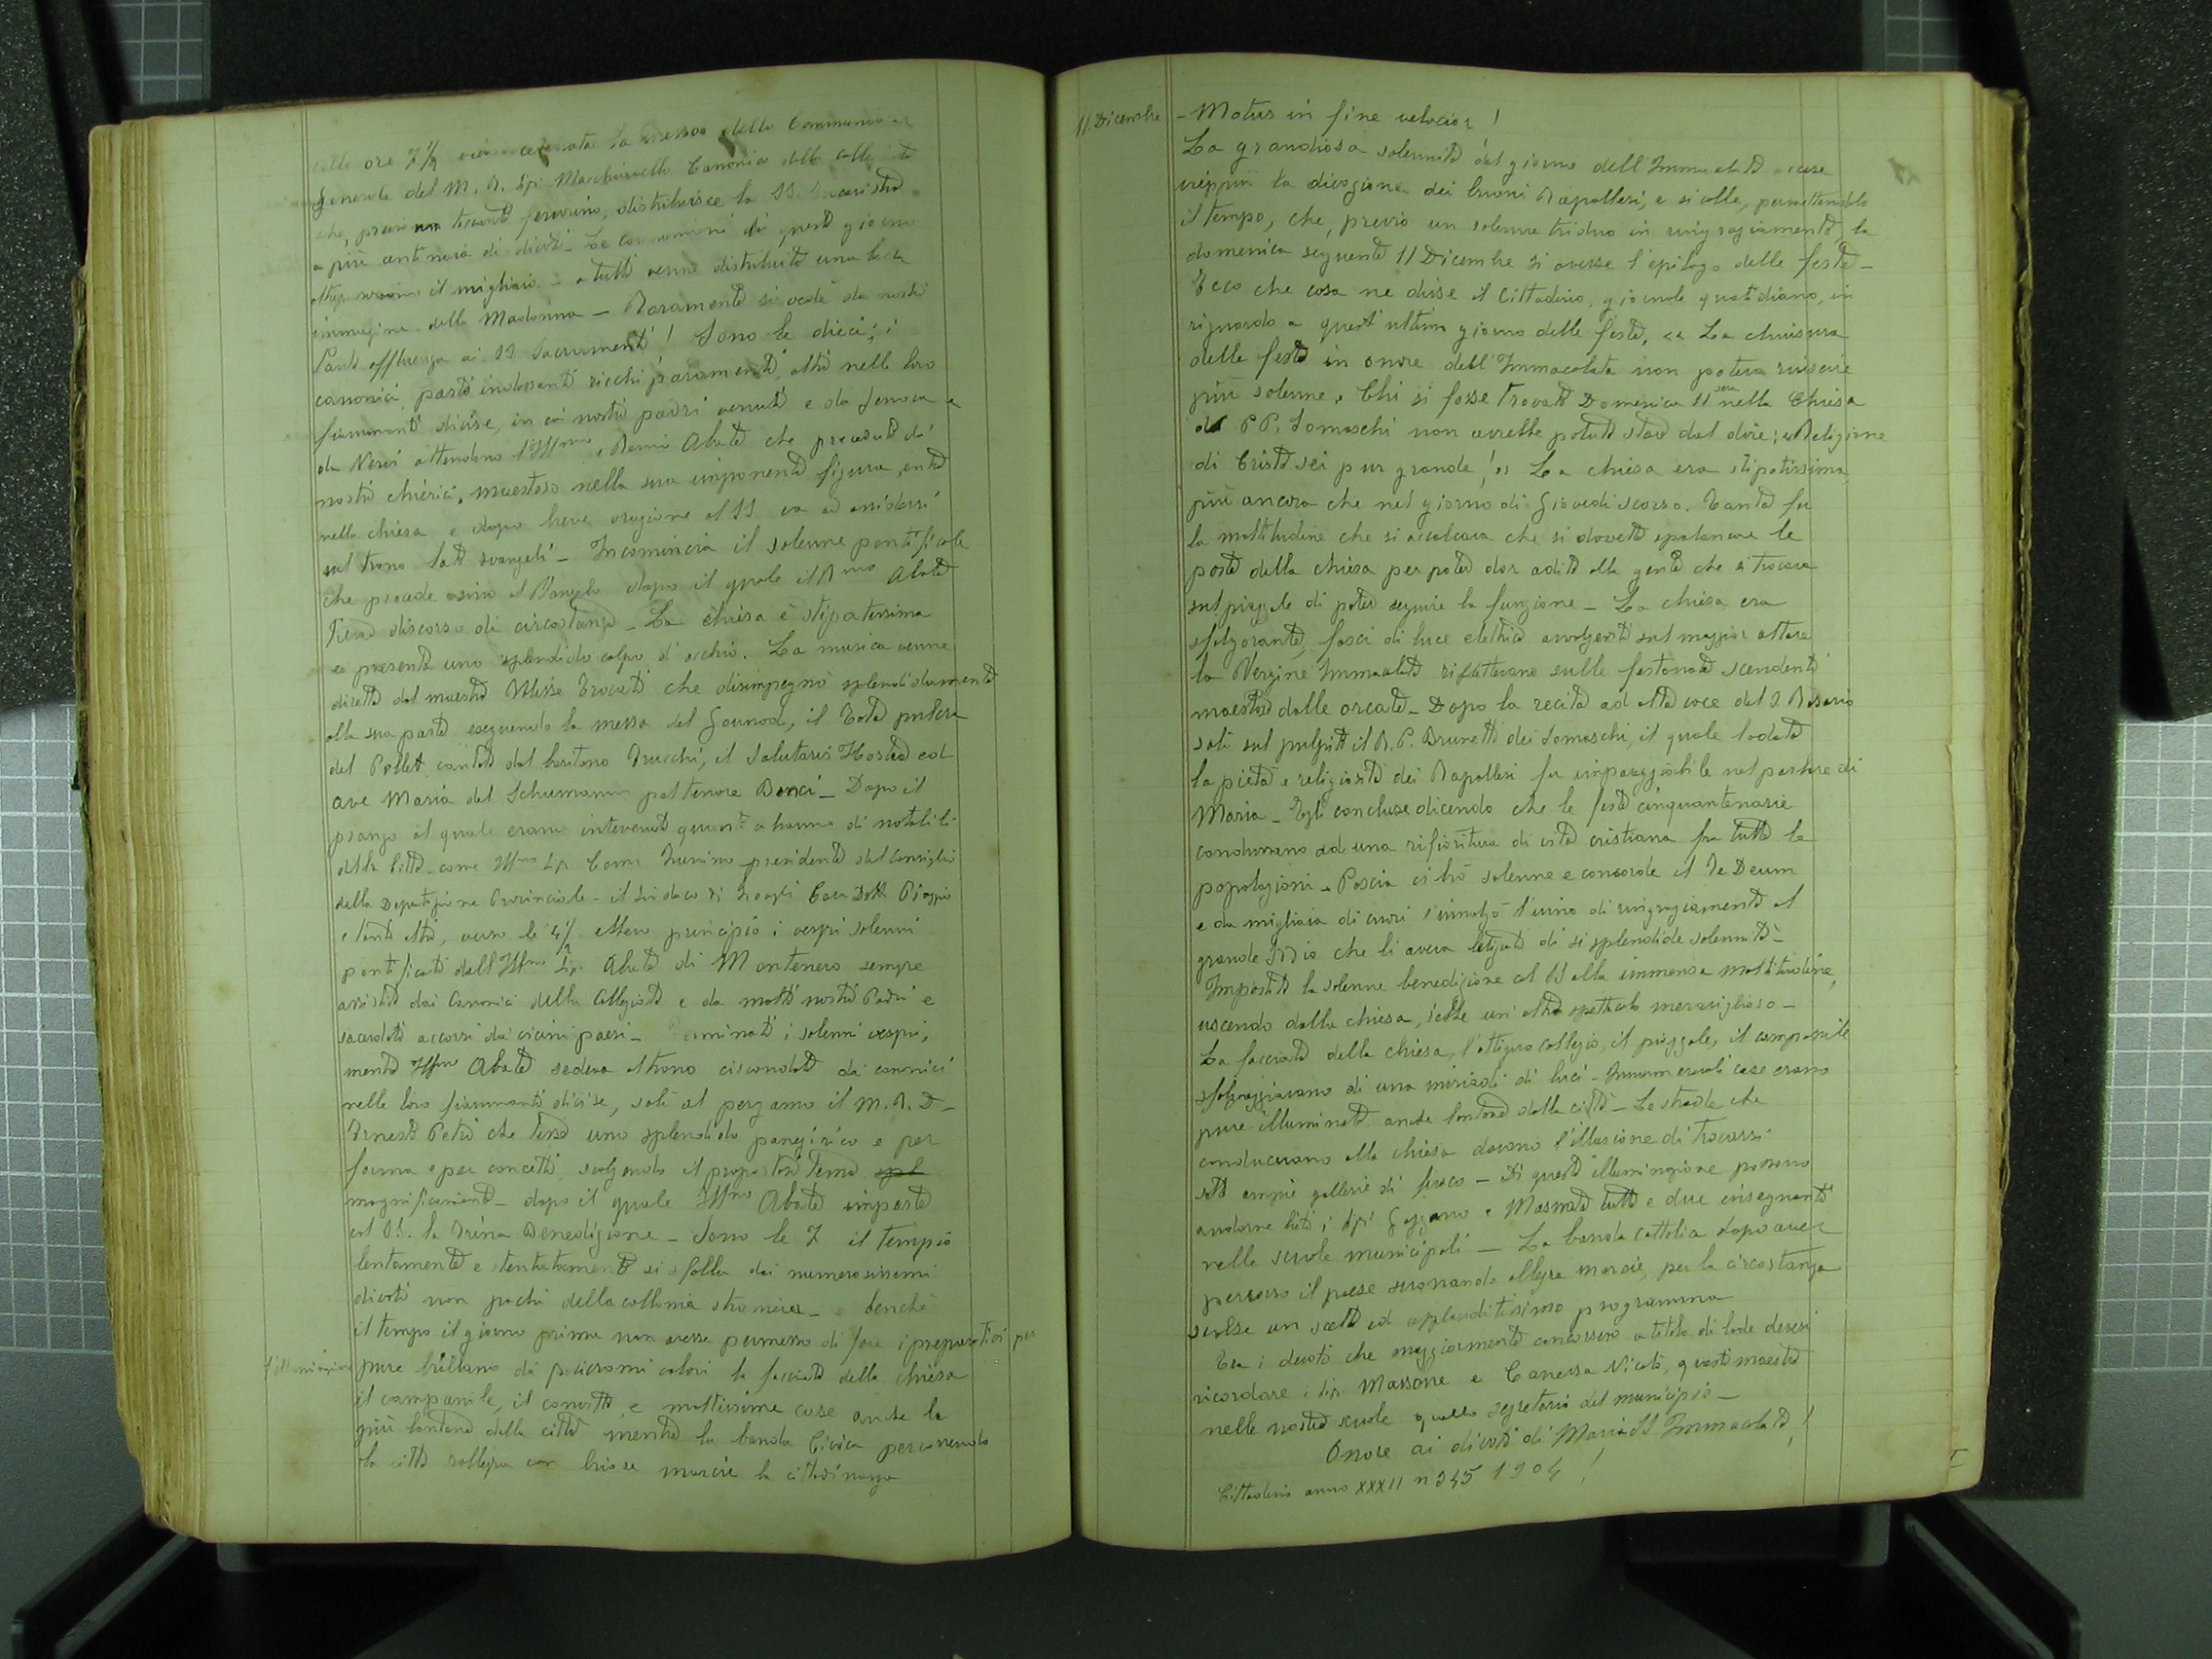 alle ore 7 1/2 la messa della Communione
generale del M. R. Sig. Macchiavello Canonico della
che, previo toccante fervorino, distribuisce la SS. Eucaristia
a più centinaia di divoti - Le comunioni di questo giorno
il migliaio - a tutti venne distribuita una bella
immagine della Madonna - Raramente si vede da noi
tanta affluenza ai SS. Sacramenti! Sono le dieci; i
canonici parte indossanti ricchi paramenti, altri nelle loro
fiammanti divise, coi nostri padri venuti e da Genova e
da Nervi attendono l'Ill.mo e R.mo Abate che preceduto dai
nostri chierici, maestoso nella sua imponente figura, entra
nella chiesa e dopo breve orazione al SS. va ad assidersi
sul trono lato evangeli - Incomincia il solenne pontificale
che procede sino al Vangelo dopo il quale il R.mo Abate
tiene discorso di circostanza - La chiesa è stipatissima
e presenta uno splendido colpo d'occhio. La musica venne
diretta dal maestro Ulisse Trovati che disimpegnò splendidamente
alla sua parte eseguendo la messa del Gounod, il Tota pulcra
del Pollet cantato dal baritono Trucchi, il Salutaris Hostia ed
ave Maria del Schumann pel tenore Bonci - Dopo il
pranzo al quale erano intervenuti di notabili
della Città come Ill.mo Sig. Comm. presidente del Consiglio
della Deputazione Provinciale - il Sindaco di Zoagli Cav. Dott. Piaggio
e tanti altri, verso le 4 1/2 ebbero principio i vespri solenni
pontificati dall'Ill.mo Sig. Abate di Montenero sempre
assistito dai Canonici della Collegiata e da molti nostri Padri e
sacerdoti accorsi dai vicini paesi - Terminati i solenni vespri,
mentre Ill.mo Abate sedeva al trono circondato dai canonici
nelle loro fiammanti divise, salì al pergamo il M. R. D.
Ernesto Petri che tenne uno splendido panegirico e per
forma e per concetti svolgendo il propostosi tema
magnificamente - dopo il quale Ill.mo Abate imparte
col SS. la Trina Benedizione - Sono le 7 il tempio
lentamente e stentatamente si sfolla dei numerosissimi
divoti non pochi della collonia straniera - e benchè
il tempo il giorno prima non avesse permesso di fare i preparativi per
l'illuminazione pure brillano di policromi colori la facciata della chiesa
il campanile, il convitto e moltissime case anche le
più lontane della città mentre la banda Civica percorrendo
la città rallegra con briose marcie la cittadinanza
11. Dicembre - Motus in fine velocior!
La grandiosa solennità del giorno dell'Immacolata accese
la divozione dei buoni Rapallesi, e si volle, permettendolo
il tempo, che, previo un solenne triduo in ringraziamento, la
domenica seguente 11 Dicembre si avesse l'epilogo delle feste -
Ecco che cosa ne disse il Cittadino, giornale quotidiano, in
riguardo a quest'ultimo giorno delle feste. « La chiusura
delle feste in onore dell'Immacolata non poteva riuscire
più solenne. Chi si fosse trovato Domenica 11 sera nella Chiesa
dei PP. Somaschi non avrebbe potuto stare dal dire: « Religione
di Cristo sei pur grande! » La chiesa era stipatissima,
più ancora che nel giorno di Giovedì scorso. Tanta fu
la moltitudine che si accalcava che si dovette spalancare le
porte della chiesa per poter dar adito alla gente che si trovava
sul piazzale di poter seguire la funzione - La chiesa era
sfolgorante, fasci di luce elettrica avvolgenti sul maggior altare
la Vergine Immacolata riflettevano sulle festonate scendenti
maestose dalle arcate - Dopo la recita ad alta voce del S. Rosario
salì sul pulpito il R. P. Brunetti dei Somaschi, il quale lodata
la pietà e religiosità dei Rapallesi fu impareggiabile nel parlare di
Maria - Egli concluse dicendo che le feste cinquantenarie
condurrano ad una rifioritura di vita cristiana fra tutte le
popolazioni - Poscia si solenne e concorde il Te Deum
e da migliaia di cuori s'innalzò l'inno di ringraziamento al
grande Iddio che li aveva letiziati di sì splendide solennità -
Impartita la solenne benedizione col SS alla immensa moltitudine,
uscendo dalla chiesa, s'ebbe un altro spettacolo meraviglioso -
La facciata della chiesa, l'attiguo collegio, il piazzale, il campanile
sfolgoreggiavano di una miriade di luci - Innumerevoli case erano
pure illuminate anche lontane dalla città - Le strade che
conducevano alla chiesa davano l'illusione di trovarsi
sotto ampie gallerie di fuoco - Di questa illuminazione possono
andarne lieti i Sigi Gaggero e Masnata tutti e due insegnanti
nelle scuole municipali - La banda cattolica dopo aver
percorso il paese suonando allegre marcie, per la circostanza
svolse un scelto ed applauditissimo programma
Tra i devoti che maggiormente concorsero a titolo di lode devesi
ricordare i Sig. Massone e Canessa Nicolò, questi maestro
nelle nostre scuole quello segretario del municipio -
Onore ai divoti di Maria SS Immacolata!
Cittadino anno XXXII n 345 1904!